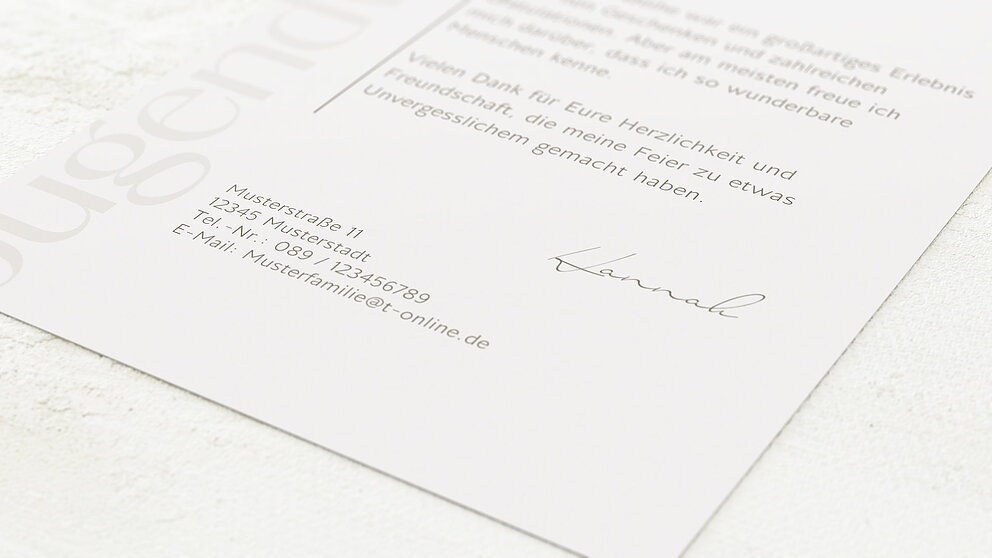 war ein großartiges Erlebnis
Geschenken und zahlreichen
Aber am meisten freue ich
mich darüber, dass ich so wunderbare
Menschen kenne.
Vielen Dank für Eure Herzlichkeit und
Freundschaft, die meine Feier zu etwas
Unvergesslichem gemacht haben.
Hannah
Musterstraße 11
12345 Musterstadt
Tel.-Nr.: 089 / 123456789
E-Mail: Musterfamilie@t-online.de
jugend